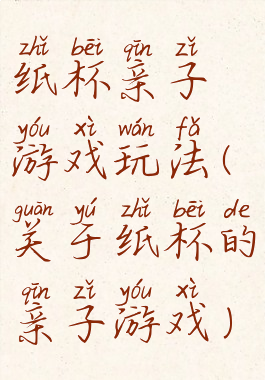 zhǐ bēi qīn zǐ
纸杯亲子
yóu xì wán fǎ
游戏玩法（
guān yú zhǐ bēi de
关于纸杯的
qīn zǐ yóu xì
亲子游戏）